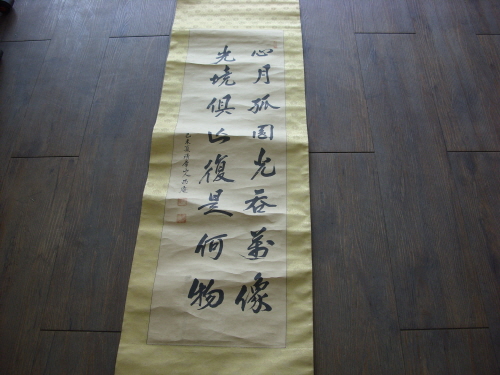 心月孤圓光吞萬像
光境俱亡復是何物
己未